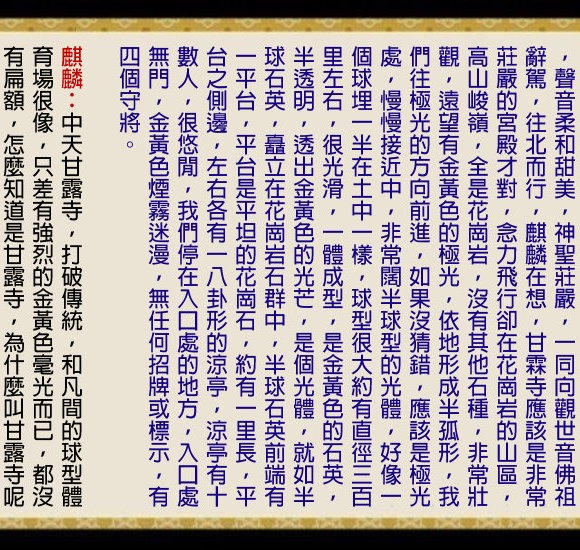 ，聲音柔和甜美，神聖莊嚴，一同向觀世音佛祖
辭駕，往北而行，麒麟在想，甘霖寺應該是非常
莊嚴的宮殿才對，念力飛行卻在花崗岩的山區，
高山峻嶺，全是花崗岩，沒有其他石種，非常壯
觀，遠望有金黃色的極光，依地形成半孤形，我
們往極光的方向前進，如果沒猜錯，應該是極光
處，慢慢接近中，非常闊半球型的光體，好像一
個球埋一半在土中一樣，球型很大約有直徑三百
里左右，很光滑，一體成型，是金黃色的石英，
半透明，透出金黃色的光芒，是個光體，就如半
球石英，矗立在花崗岩石群中，半球石英前端有
一平台，平台是平坦的花崗石，約有一里長，平
台之側邊，左右各有一八卦形的涼亭，涼亭有十
數人，很悠閒，我們停在入口處的地方，入口處
無門，金黃色煙霧迷漫，無任何招牌或標示，有
四個守將。
麒麟：中天甘露寺，打破傳統，和凡間的球型體
育場很像，只差有強烈的金黃色毫光而已，都沒
有扁額，怎麼知道是甘露寺，為什麼叫甘露寺呢